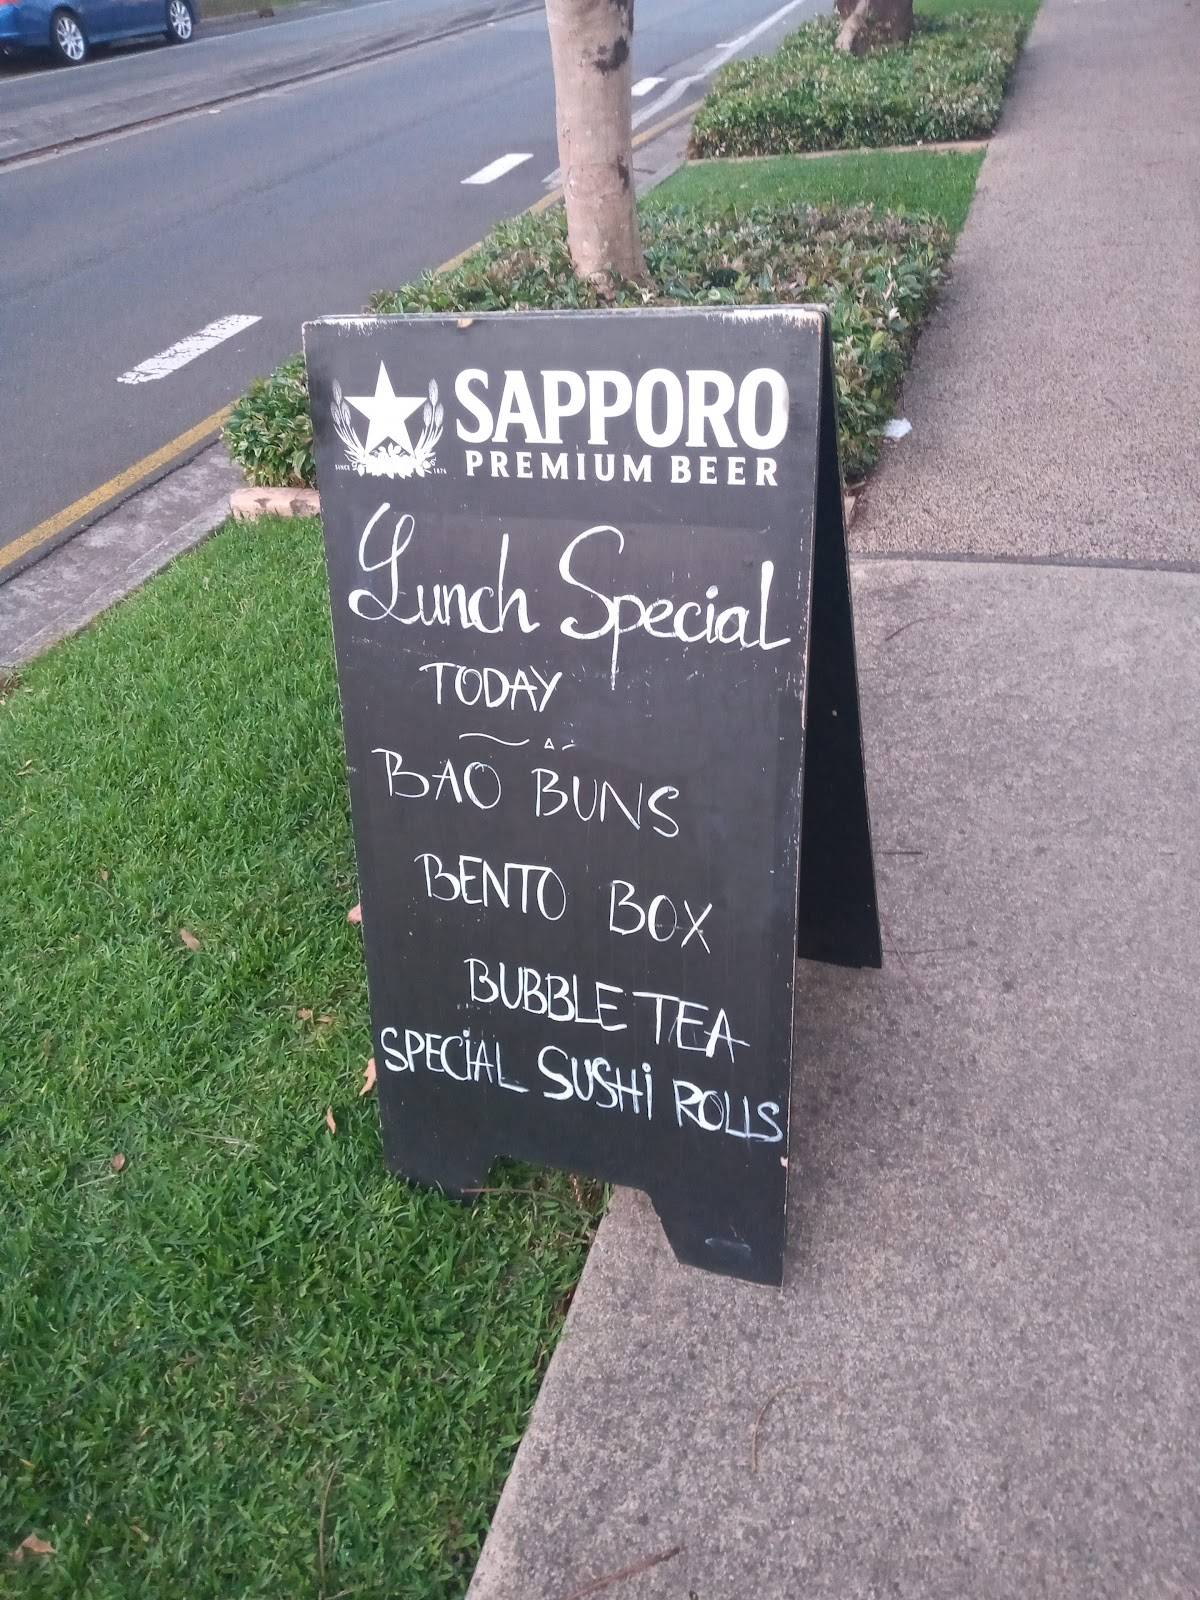 SAPPORO
PREMIUM BEER
SINCE 1876
Lunch Special
TODAY
BAO BUNS
BENTO BOX
BUBBLE TEA
SPECIAL SUSHI ROLLS